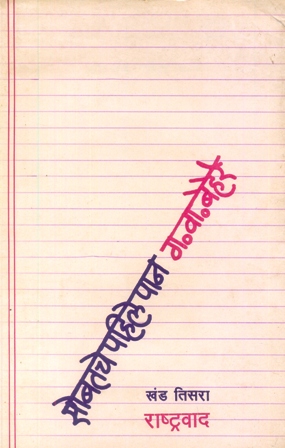 सोबतचे पहिले पान
ग. वा. बेहेरे
खंड तिसरा
राष्ट्रवाद